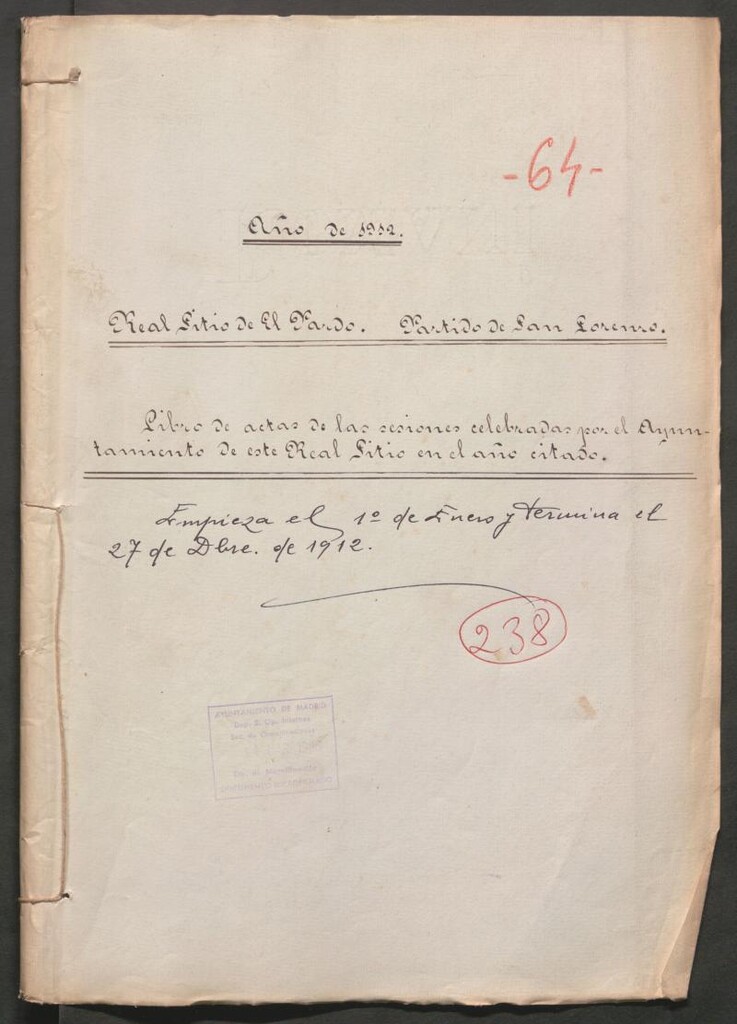 -64-
Año de 1912.
Real Sitio de El Pardo. Partido de San Lorenzo.
Libro de actas de las sesiones celebradas por el Ayun-
tamiento de este Real Sitio en el año citado.
Empieza el 1º de Enero y termina el
27 de Dbre. de 1912.
238
AYUNTAMIENTO DE MADRID